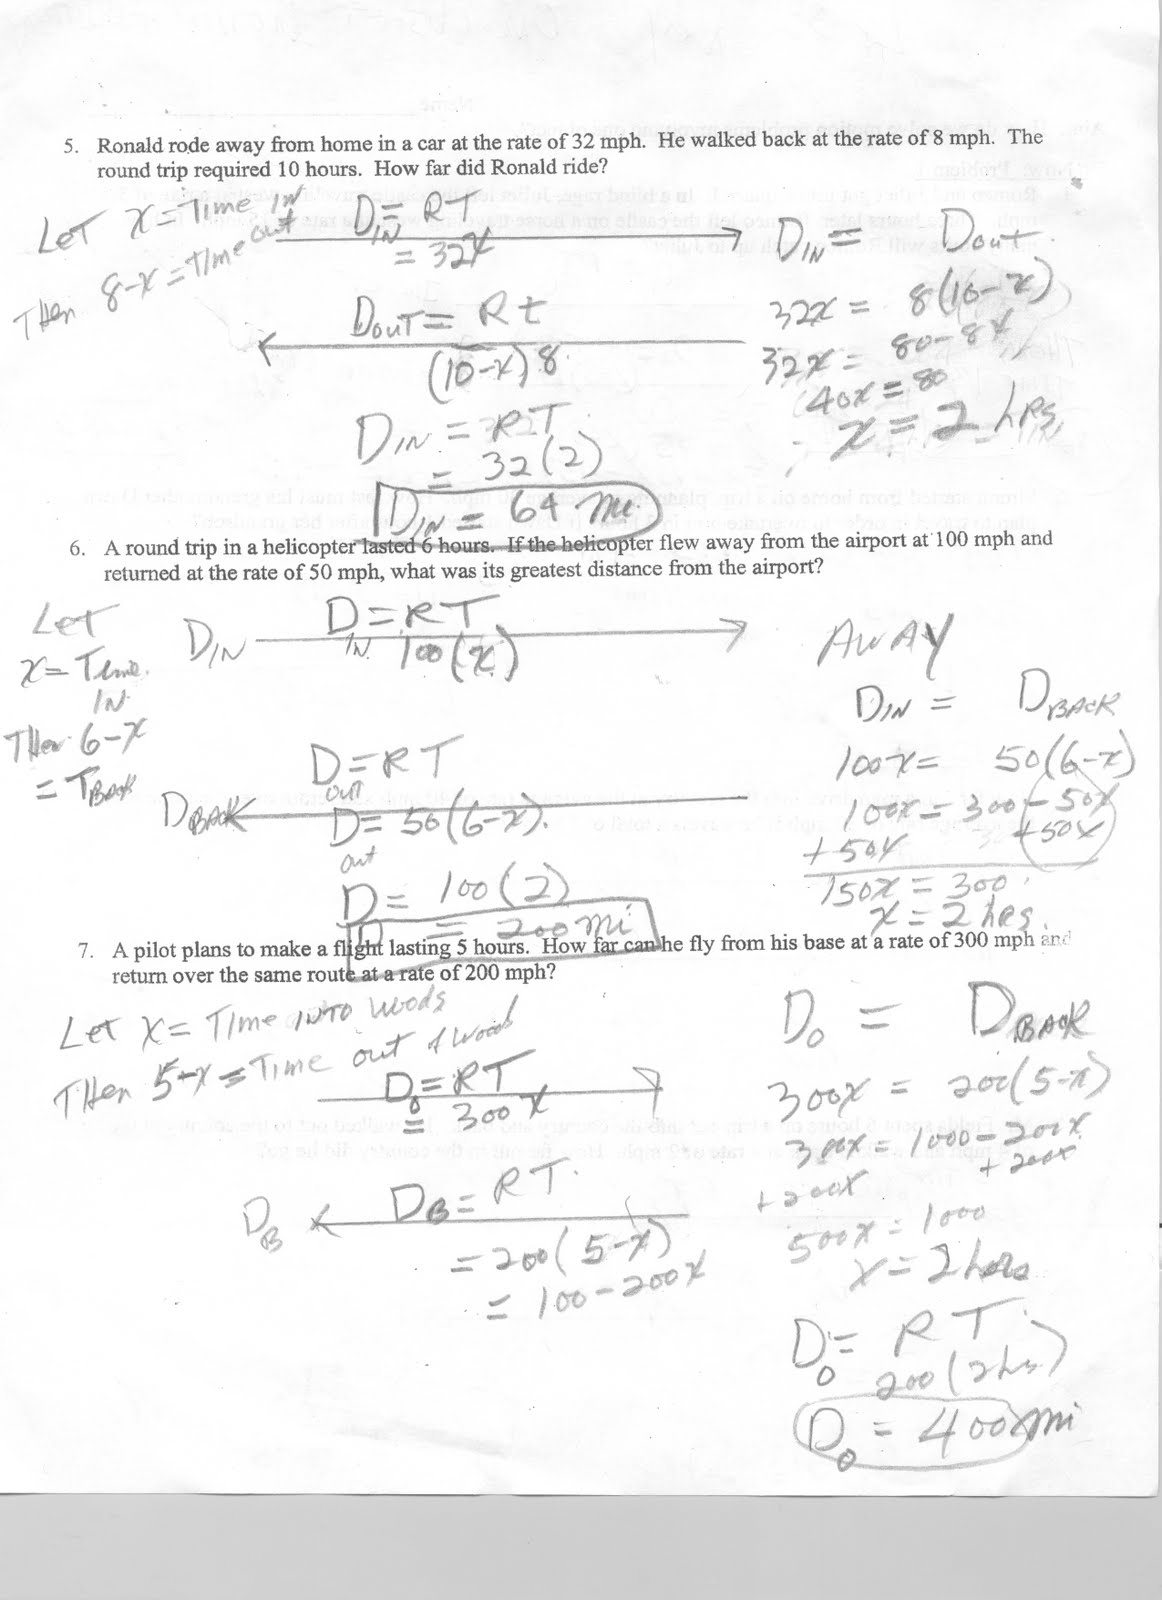 5. Ronald rode away from home in a car at the rate of 32 mph. He walked back at the rate of 8 mph. The
round trip required 10 hours. How far did Ronald ride?
LET x = TIME IN
THEN 8-x = TIME out
D_IN = RT
= 32x
D_OUT = Rt
(10-x) 8
D_IN = RT
= 32(2)
D_IN = 64 mi.
D_IN = D_out
32x = 8(10-x)
32x = 80-8x
40x = 80
x = 2 hrs,
6. A round trip in a helicopter lasted 6 hours. If the helicopter flew away from the airport at 100 mph and
returned at the rate of 50 mph, what was its greatest distance from the airport?
LET
x = Time.
IN
THEN 6-x
= T_BACK
D_IN
D_IN = RT
100(x)
D_OUT = RT
D_BACK
D_out = 50(6-x).
D = 100(2)
D = 200 mi
AWAY
D_IN = D_BACK
100x = 50(6-x)
100x = 300 - 50x
+50x +50x
150x = 300
x = 2 hrs.
7. A pilot plans to make a flight lasting 5 hours. How far can he fly from his base at a rate of 300 mph and
return over the same route at a rate of 200 mph?
LET x = TIME INTO woods
THEN 5-x = TIME out of woods
D_o = RT
= 300x
D_B
D_B = RT
= 200(5-x)
= 100-200x
D_o = D_BACK
300x = 200(5-x)
300x = 1000-200x
+200x +200x
500x = 1000
x = 2 hrs
D_o = RT
200(2hrs)
D_o = 400 mi